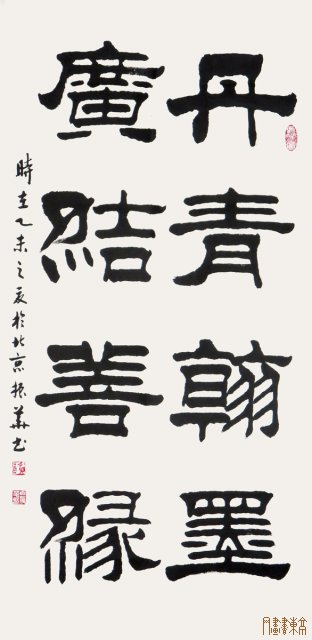 丹青翰墨
廣結善緣
時在乙未之夏於北京振華书